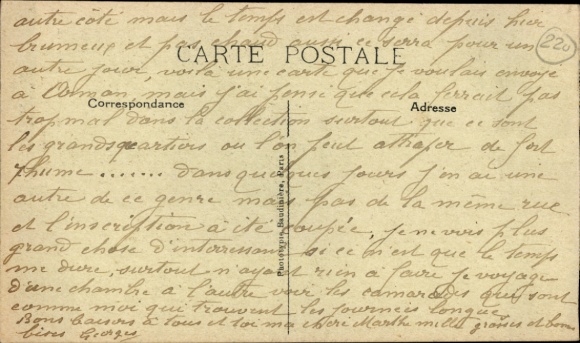 autre côté mais le temps est changé depuis hier
brumeux et pas chaud aussi ce serra pour un
CARTE POSTALE
220
autre jour, voila une carte que je voulais envoyé
à mais j'ai pensé que cela ferrait pas
Correspondance
Adresse
trop mal dans la collection surtout que ce sont
les grands quartiers ou l'on peut attraper de fort
rhume ....... dans quelques jours j'en ai une
autre de ce genre mais pas de la même rue
et l'inscription a été coupée, je ne vois plus
grand chose d'interressant si ce n'est que le temps
me dure, surtout n'ayant rien à faire je voyage
d'une chambre à l'autre voir les camarades qui sont
comme moi qui trouvent les journées longues
Bons baisers à tous et toi ma chère Marthe mille grosses et bonnes
bises Georges
Phototypie Baudinière, Paris